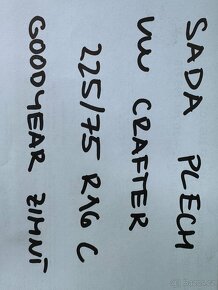 SADA PLECH
VW CRAFTER
225/75 R16 C
GOODYEAR ZIMNÍ